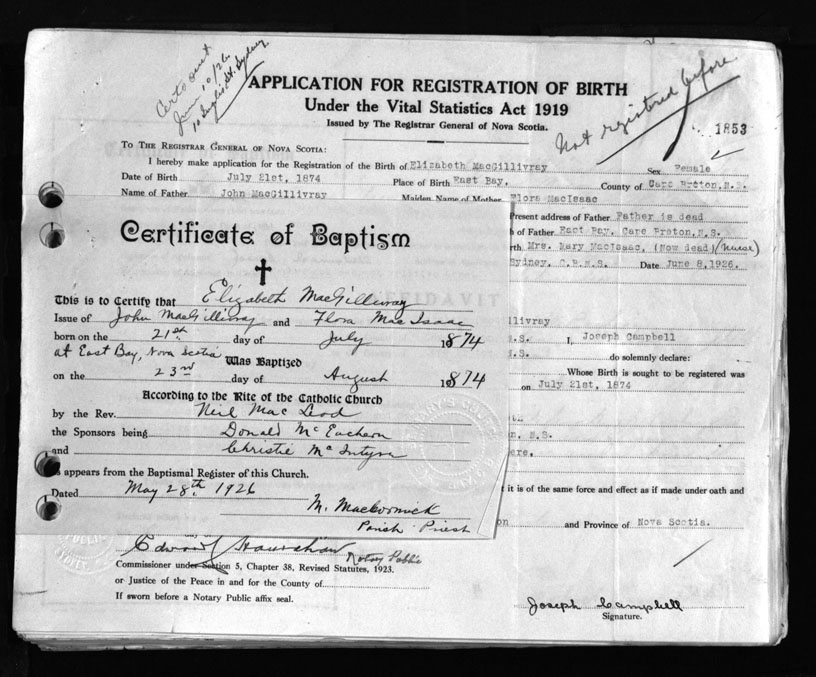 Cert out
June 10/26
10 Inglis St. Sydney
APPLICATION FOR REGISTRATION OF BIRTH
Under the Vital Statistics Act 1919
Issued by The Registrar General of Nova Scotia.
Not registered before
1853
TO THE REGISTRAR GENERAL OF NOVA SCOTIA:
I hereby make application for the Registration of the Birth of Elizabeth MacGillivray Sex Female
Date of Birth July 21st, 1874 Place of Birth East Bay, County of Cape Breton, N.S.
Name of Father John MacGillivray Maiden Name of Mother Flora MacIsaac
Present address of Father Father is dead
of Father East Bay, Cape Breton, N.S.
Mrs. Mary MacIsaac, (Now dead) (Nurse)
Sydney, C.B. N.S. Date June 8, 1926.
Certificate of Baptism
This is to Certify that Elizabeth MacGillivray
Issue of John MacGillivray and Flora MacIsaac
born on the 21st day of July 1874
at East Bay, Nova Scotia
Was Baptized
on the 23rd day of August 1874
According to the Rite of the Catholic Church
by the Rev. Neil Mac Leod
the Sponsors being Donald McEachern
and Christie McIntyre
as appears from the Baptismal Register of this Church.
Dated May 28th 1926
M. MacCormick
Parish Priest
AFFIDAVIT
llivray
N.S. I, Joseph Campbell
N.S. do solemnly declare:
Whose Birth is sought to be registered was
on July 21st, 1874
N.S.
it is of the same force and effect as if made under oath and
on and Province of Nova Scotia.
Edward Notary Public
Commissioner under Section 5, Chapter 38, Revised Statutes, 1923.
or Justice of the Peace in and for the County of
If sworn before a Notary Public affix seal.
Joseph Campbell
Signature.